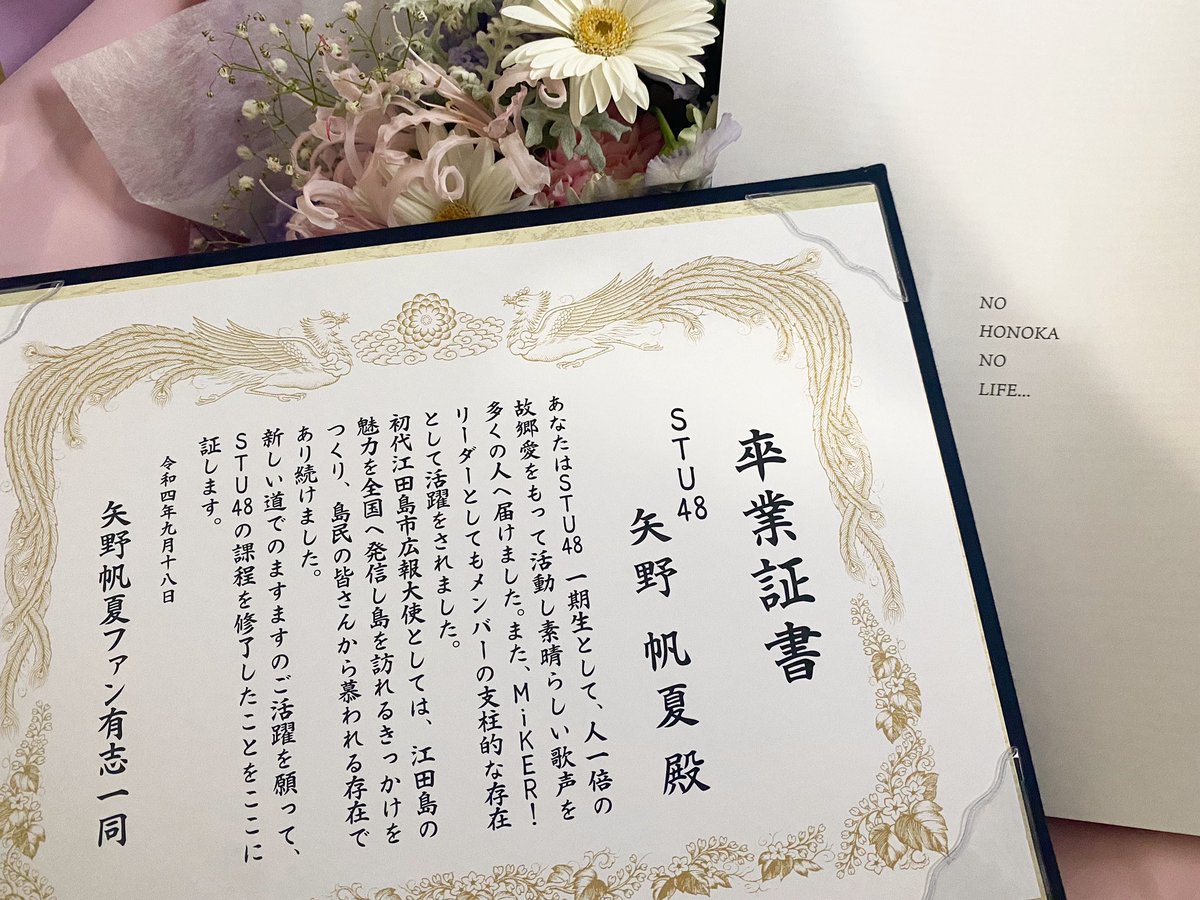 卒業証書
STU48
矢野 帆夏 殿
あなたはSTU48一期生として、人一倍の
故郷愛をもって活動し素晴らしい歌声を
多くの人へ届けました。また、MiKER!
リーダーとしてもメンバーの支柱的な存在
として活躍をされました。
初代江田島市広報大使としては、江田島の
魅力を全国へ発信し島を訪れるきっかけを
つくり、島民の皆さんから慕われる存在で
あり続けました。
新しい道でのますますのご活躍を願って、
STU48の課程を修了したことをここに
証します。
令和四年九月十八日
矢野帆夏ファン有志一同
NO
HONOKA
NO
LIFE...